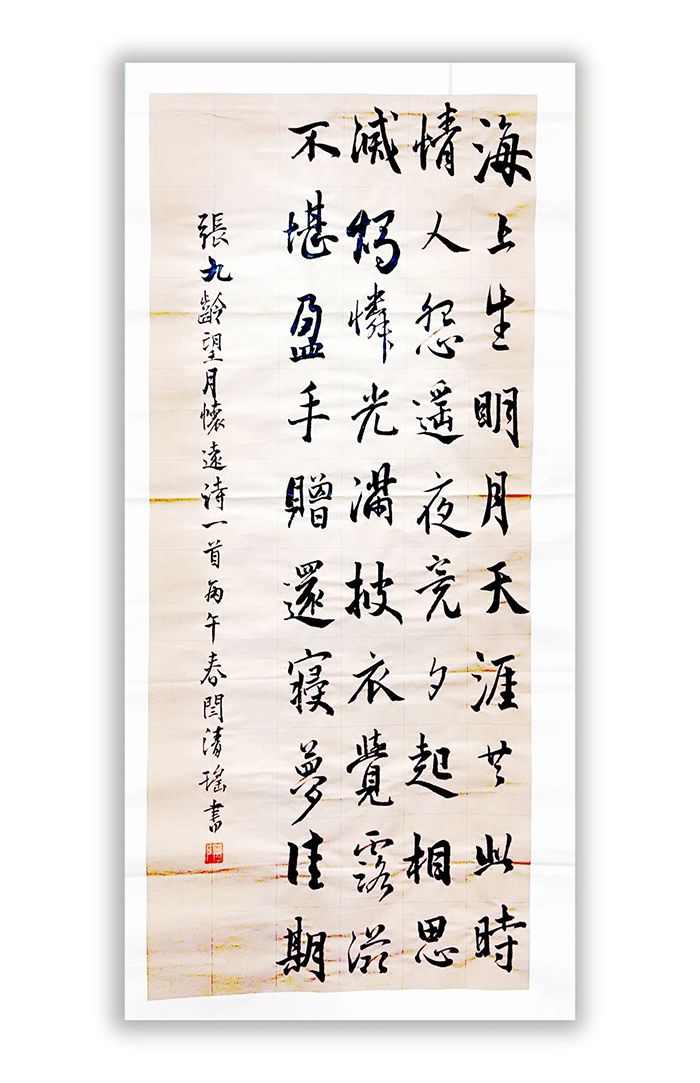 海上生明月天涯共此時
情人怨遥夜竟夕起相思
滅燭憐光滿披衣覺露滋
不堪盈手贈還寢夢佳期
張九齡望月懷遠詩一首丙午春閆清瑶書